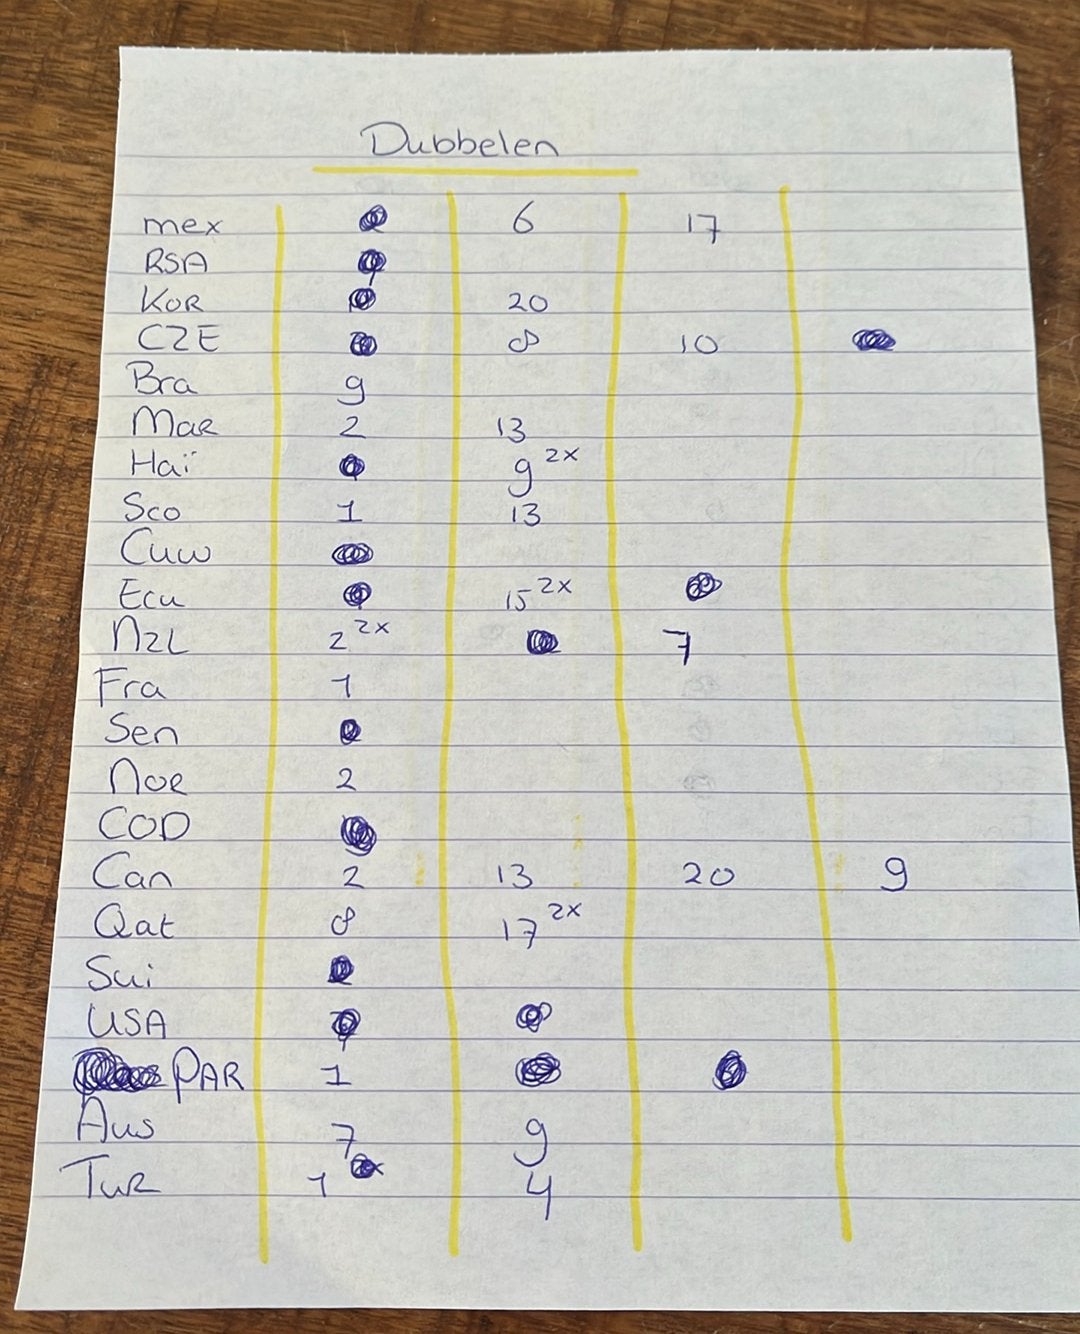 Dubbelen
mex 6 17
RSA
KOR 20
CZE 8 10
Bra 9
Mar 2 13
Haï 9 2x
Sco 1 13
Cuw
Ecu 15 2x
NZL 2 2x 7
Fra 1
Sen
Nor 2
COD
Can 2 13 20 9
Qat 8 17 2x
Sui
USA
PAR 1
Aus 7 9
Tur 1 4